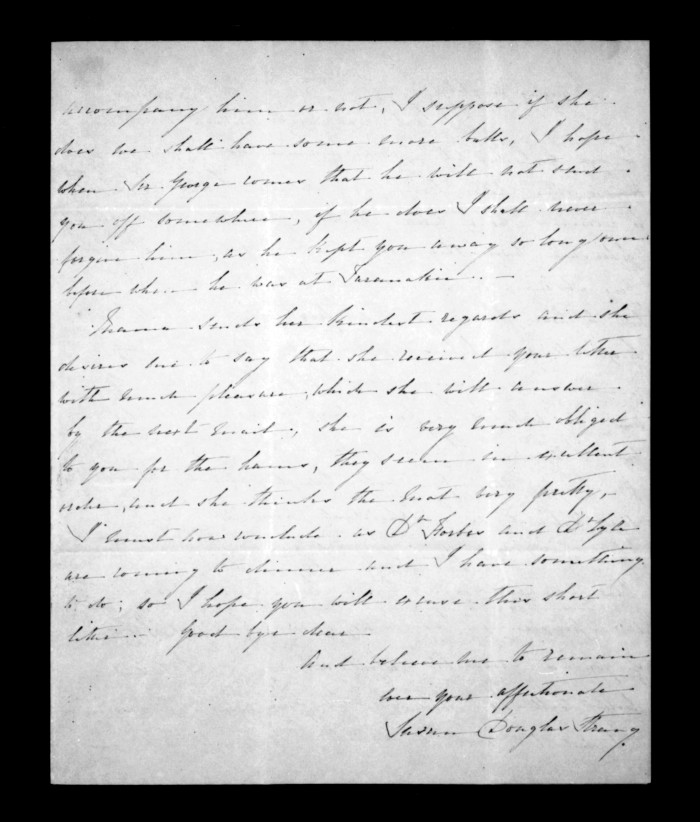 accompany him or not, I suppose if she
does we shall have some more balls, I hope
when Sir George comes that he will not send
you off somewhere, if he does I shall never
forgive him, as he kept you away so long
before when he was at Taranakin. -
Mama sends her kindest regards and she
desires me to say that she received your letter
with much pleasure, which she will answer
by the next mail, she is very much obliged
to you for the hams, they seem in excellent
order, and she thinks the mat very pretty,
I must now conclude as Dr Forbes and Dr Lyle
are coming to dinner and I have something
to do; so I hope you will excuse this short
letter. Good bye dear
And believe me to remain
ever your affectionate
Susan Douglas Strang